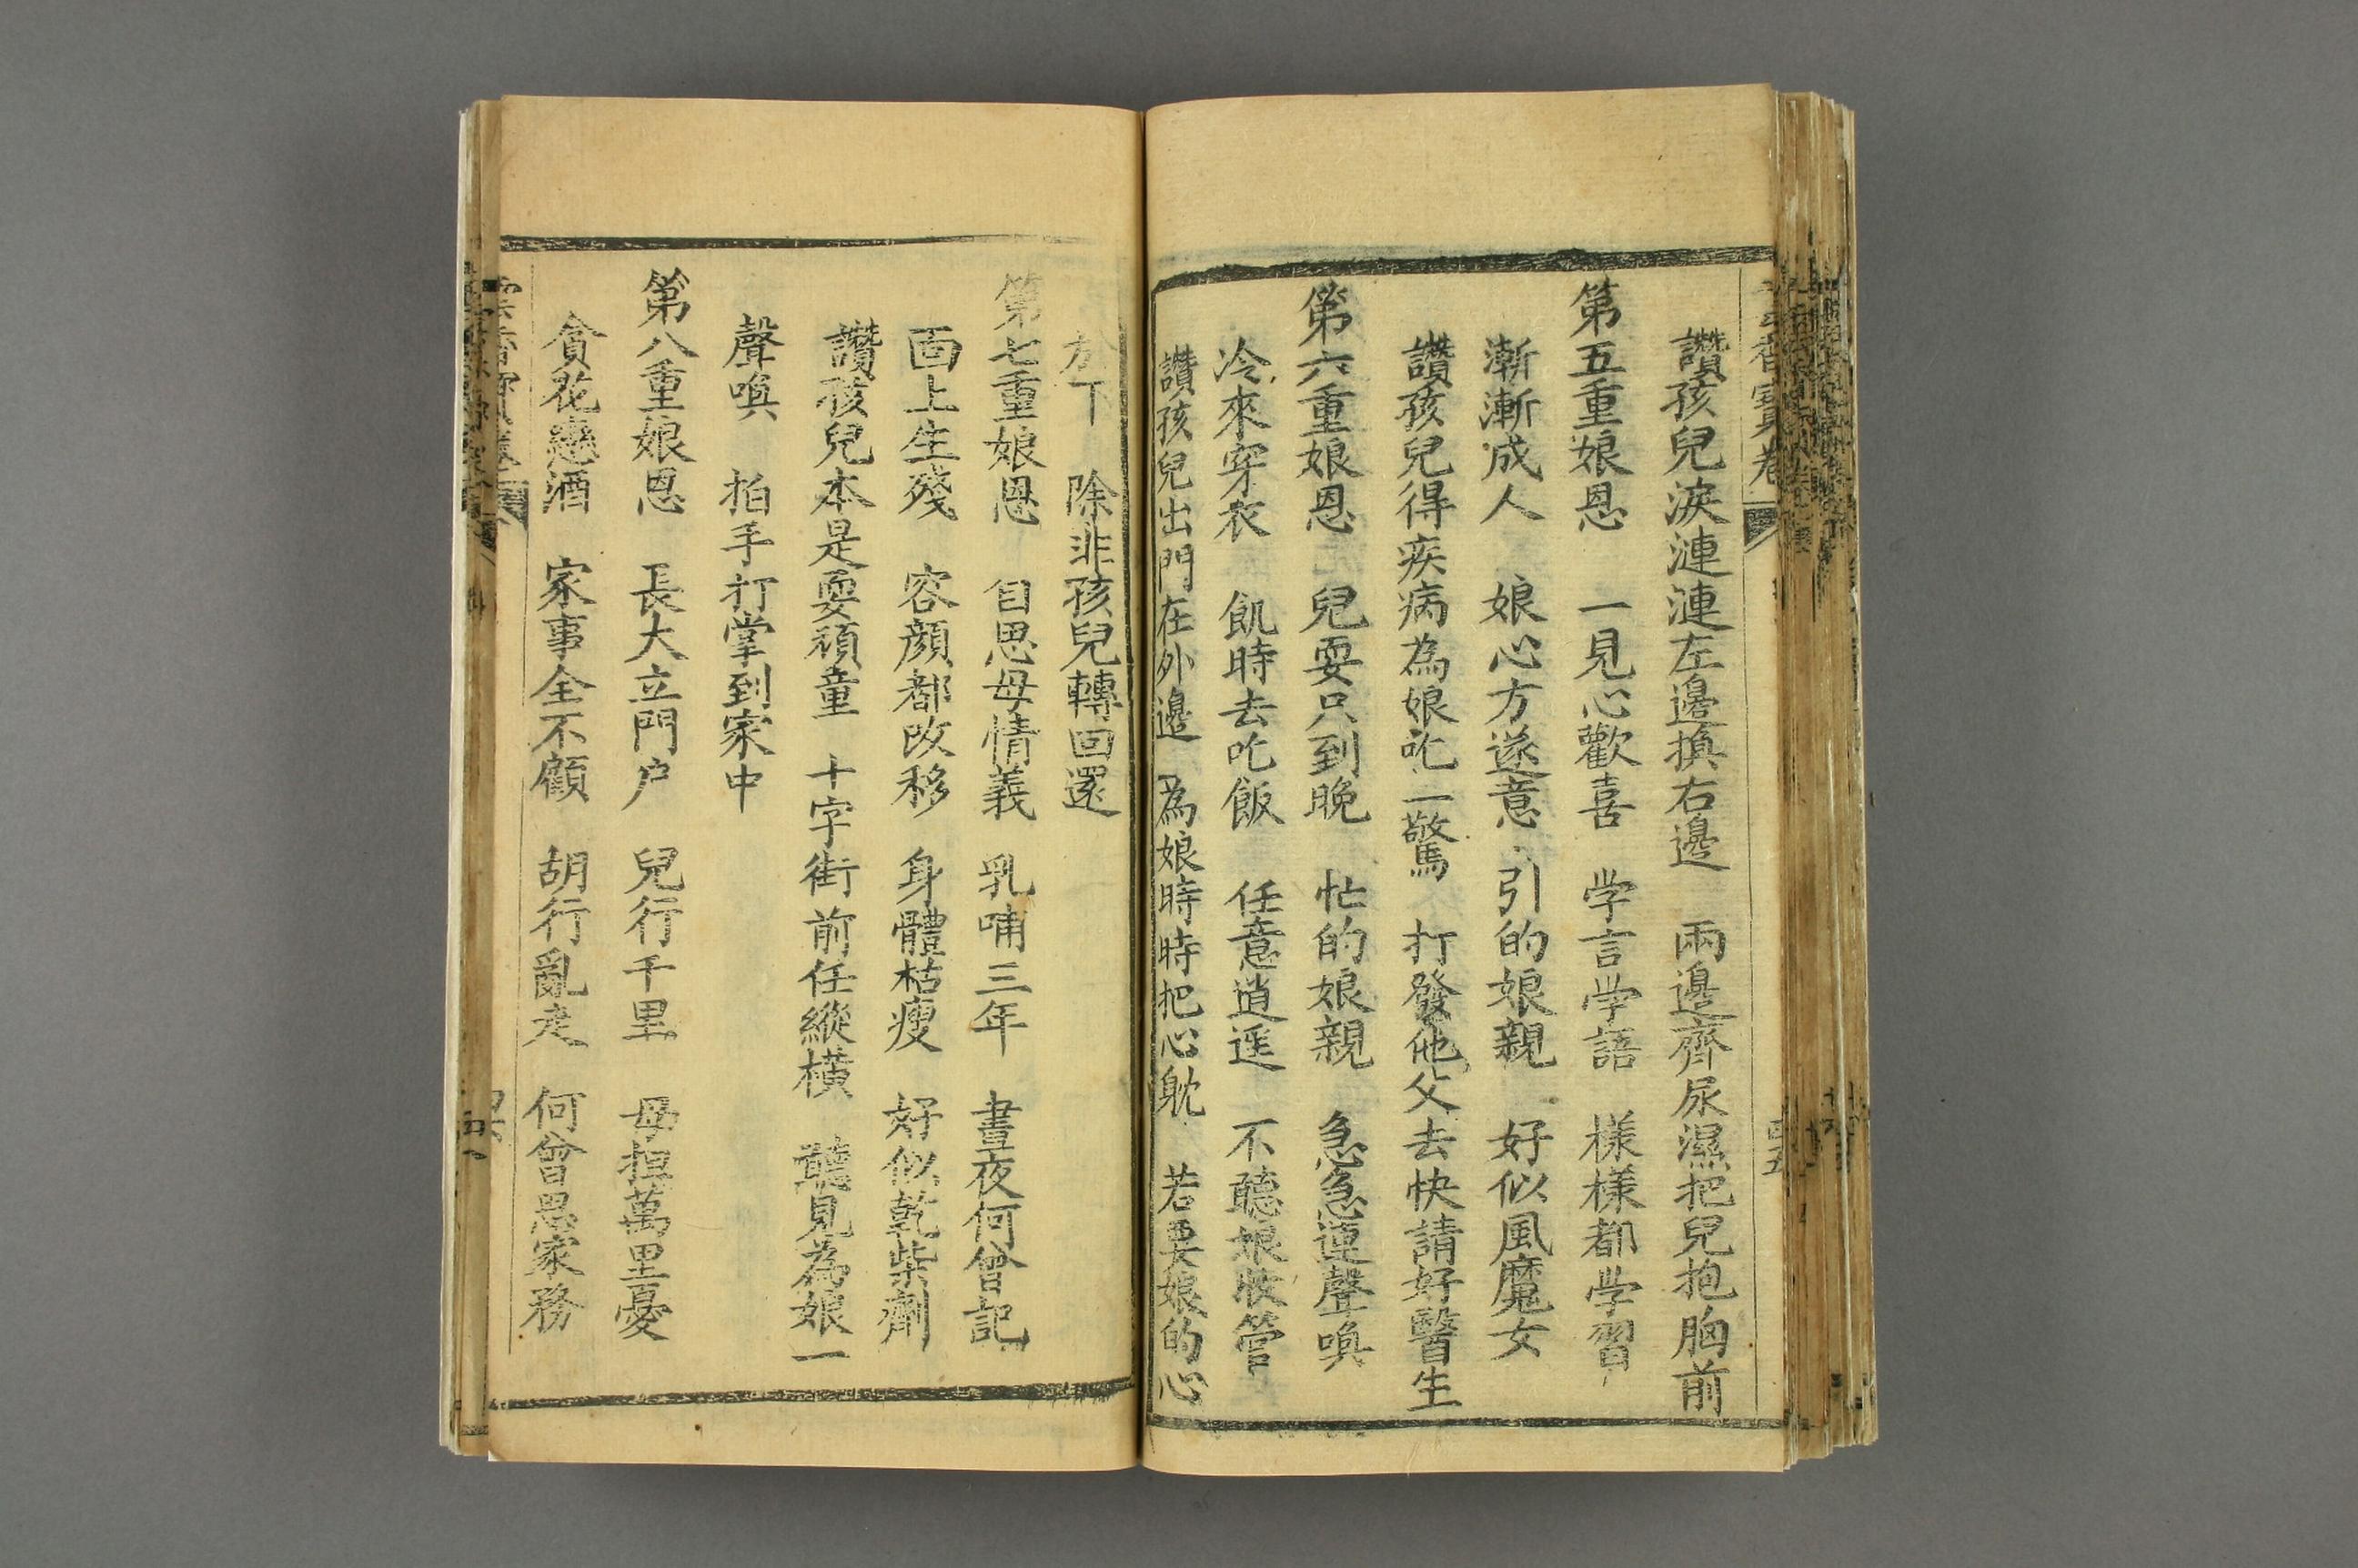 香寶卷
讚孩兒淚漣漣左邊換右邊 兩邊齊尿濕把兒抱胸前
第五重娘恩 一見心歡喜 学言学語 樣樣都学習
漸漸成人 娘心方遂意 引的娘親 好似風魔女
讚孩兒得疾病為娘吃一驚 打發他父去快請好醫生
第六重娘恩 兒耍只到晚 忙的娘親 急急連聲喚
冷來穿衣 飢時去吃飯 任意逍遥 不聽娘收管
讚孩兒出門在外邊 為娘時時把心躭 若要娘的心
放下 除非孩兒轉回還
第七重娘恩 自思母情義 乳哺三年 晝夜何曾記
面上生殘 容顔都改移 身體枯瘦 好似乾柴劑
讚孩兒本是耍頑童 十字街前任縱横 聽見為娘一
聲喚 拍手打掌到家中
第八重娘恩 長大立門户 兒行千里 母担萬里憂
貪花戀酒 家事全不顧 胡行亂走 何曾思家務